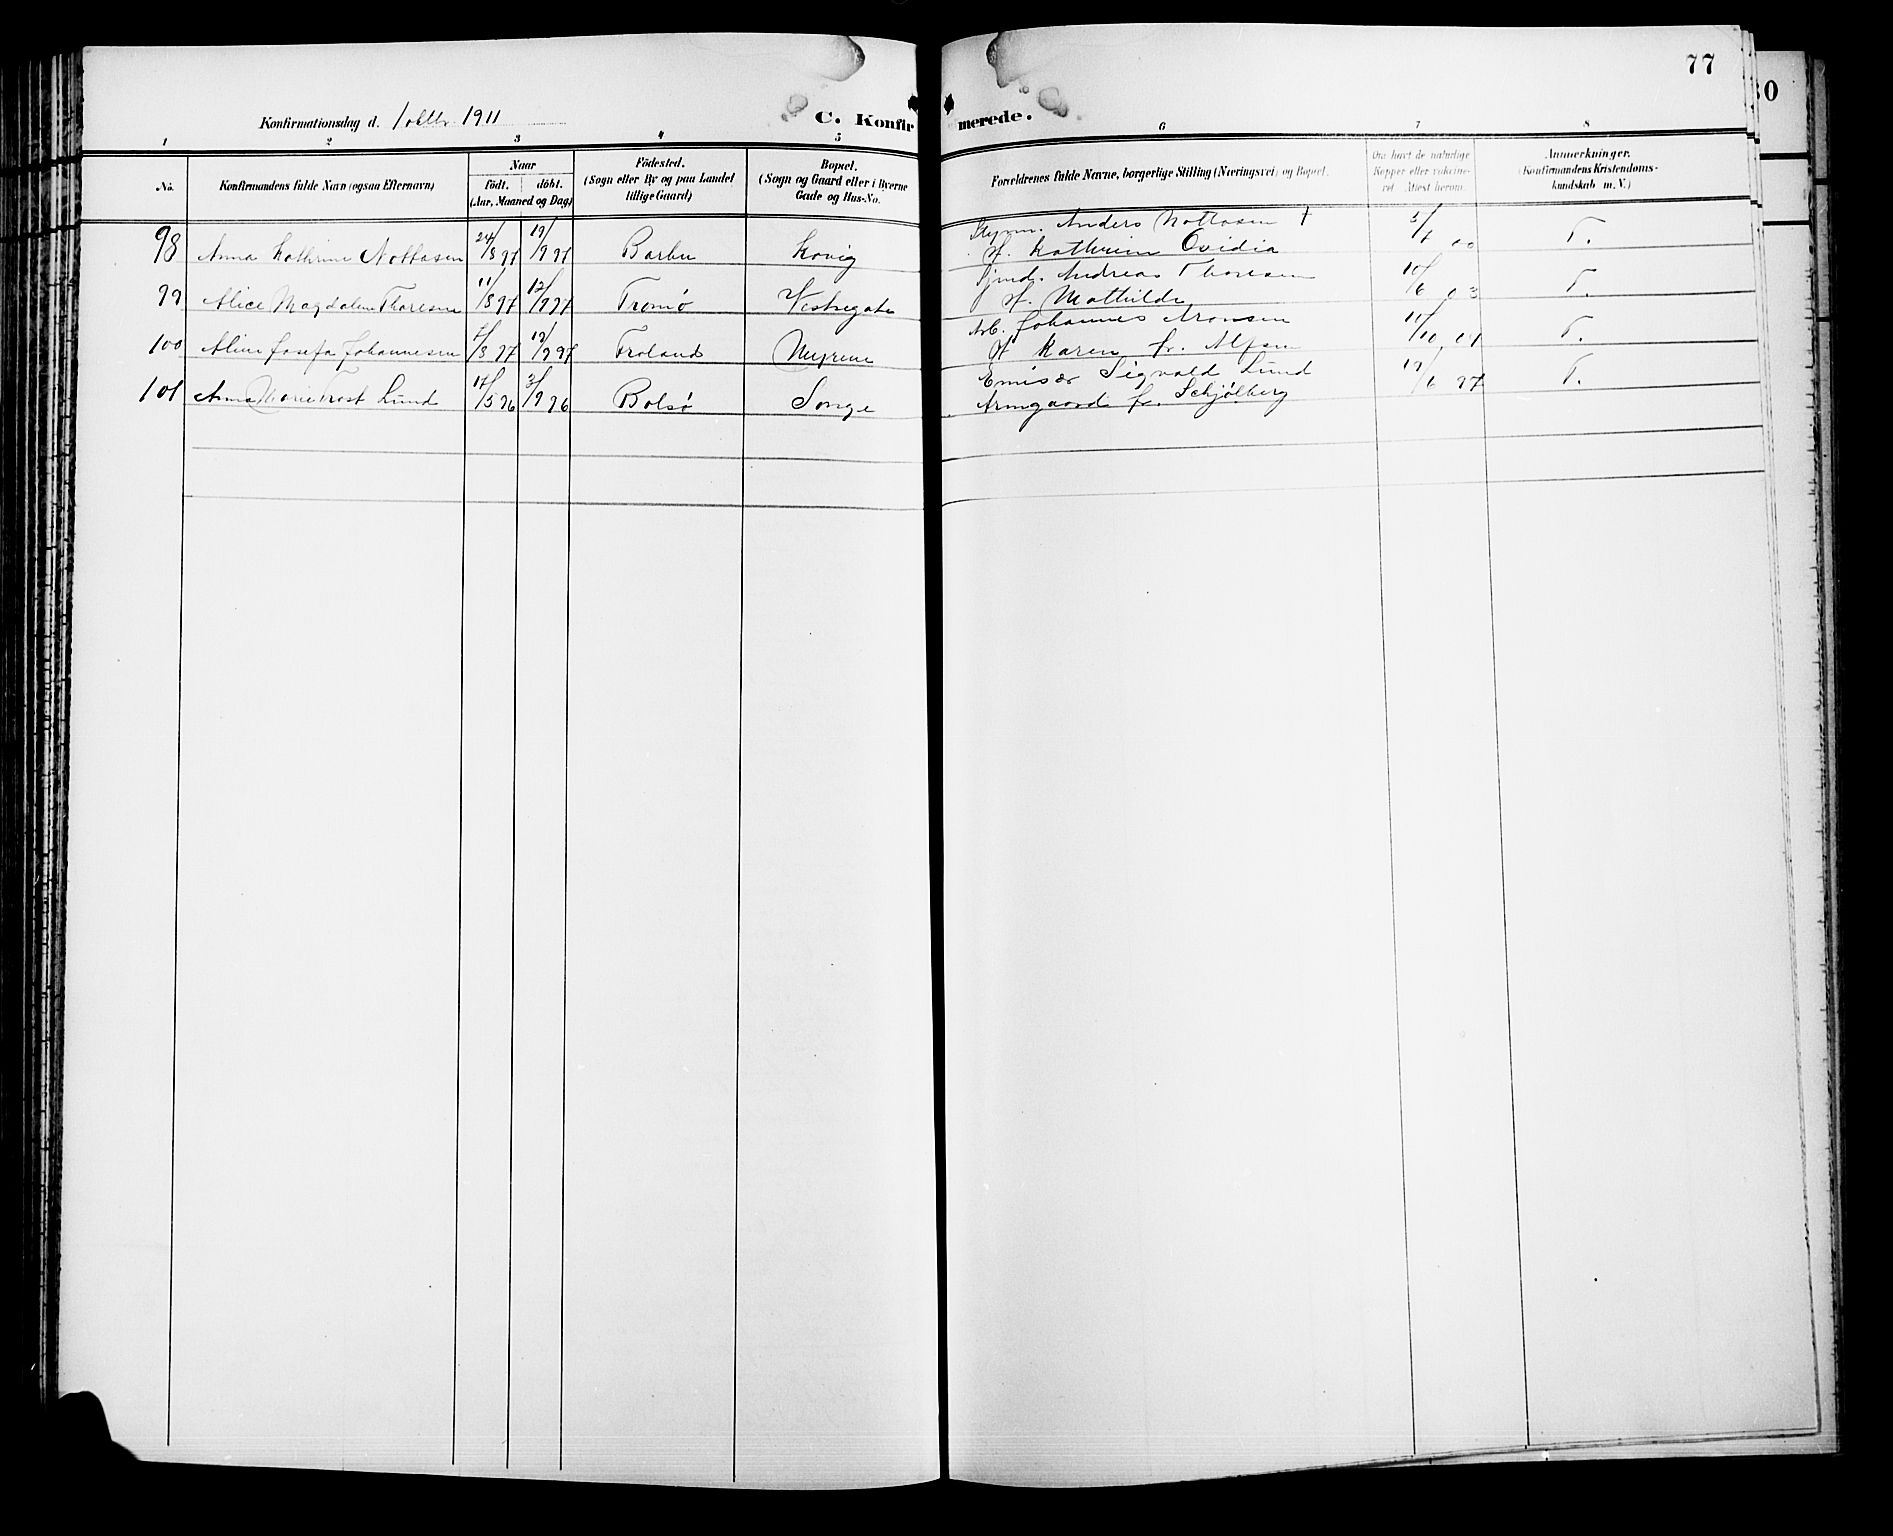 77
30
Konfirmationsdag d. 1 oktbr. 1911
C. Konfirmerede.
1 2 3 4 5 6 7 8
No.
Konfirmandens fulde Navn (ogsaa Efternavn)
Naar
födt. döbt.
(Aar, Maaned og Dag)
Födested.
(Sogn eller By og paa Landet
tillige Gaard)
Bopæl.
(Sogn og Gaard eller i Byerne
Gade og Hus-No.
Forældrenes fulde Navne, borgerlige Stilling (Næringsvei) og Bopæl.
Om havt de naturlige
Kopper eller vaksine-
ret. Attest herom.
Anmerkninger.
(Konfirmandens Kristendoms-
kundskab m. V.)
98 Anna Kathrine Nottosen 24/8 97 19/9 97 Barbu Kovig Anders Nottosen † 00 T.
H. Kathrine Ovidia
99 Alice Magdalene Thoresen 11/8 97 12/9 97 Tromø Vestregate Andreas Thoresen 10/6 03 T.
H. Mathilde
100 Aline Josefa Johannesen 97 19/9 97 Froland Myrene Arb. Johannes Aronsen 11/10 01 T.
H. Karen f. Alfsen
101 Anna Marie Trost Lund 17/5 96 3/9 96 Bolsø Songe Emisær Sigvald Lund 19/6 97 T.
Armgaard f. Schjølberg